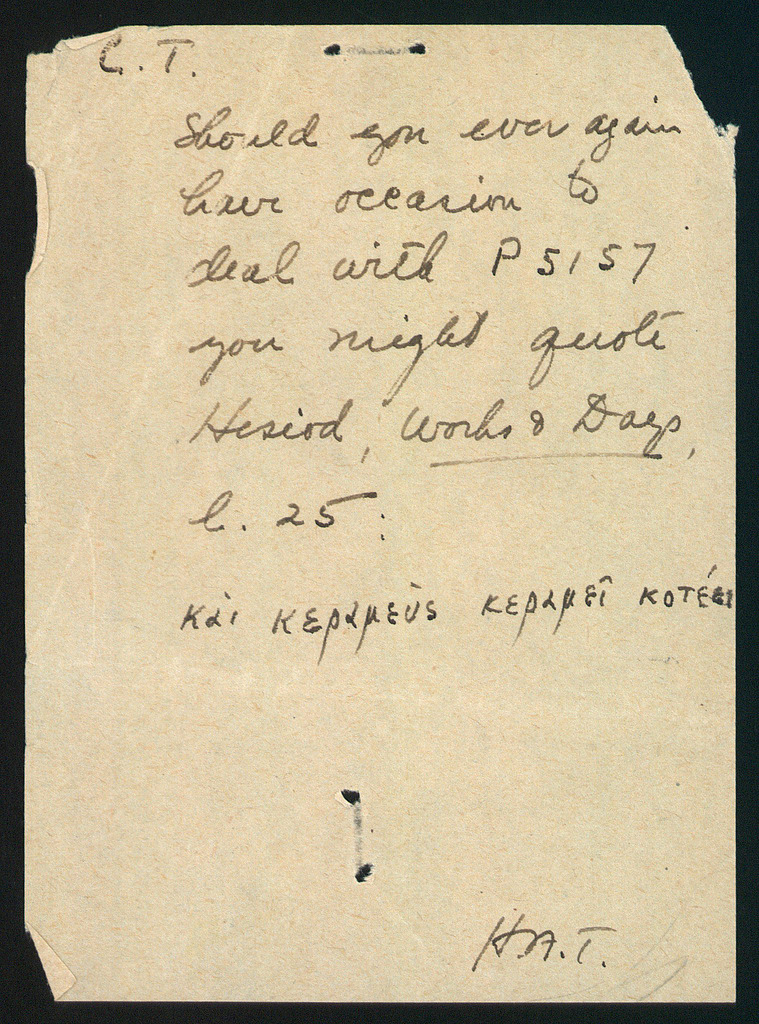 L.T.
Should you ever again
have occasion to
deal with P 5157
you might quote
Hesiod, Works & Days,
l. 25:
καὶ κεραμεὺς κεραμεῖ κοτέει
H.A.T.